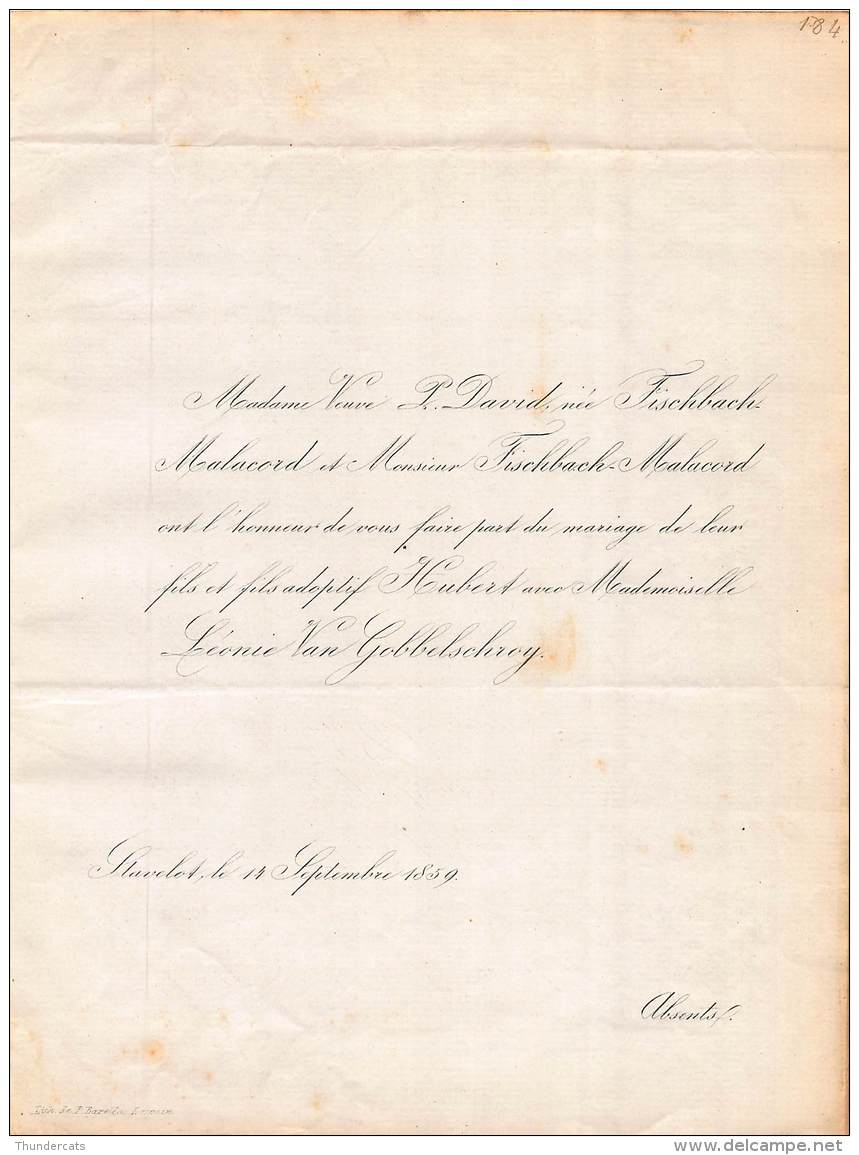 184
Madame Veuve P. David, née Fischbach-
Malacord et Monsieur Fischbach-Malacord
ont l'honneur de vous faire part du mariage de leur
fils et fils adoptif Hubert avec Mademoiselle
Léonie Van Gobbelschroy.
Stavelot, le 14 Septembre 1859.
Absents.
Lith. de P.
Thundercats
delcampe.net